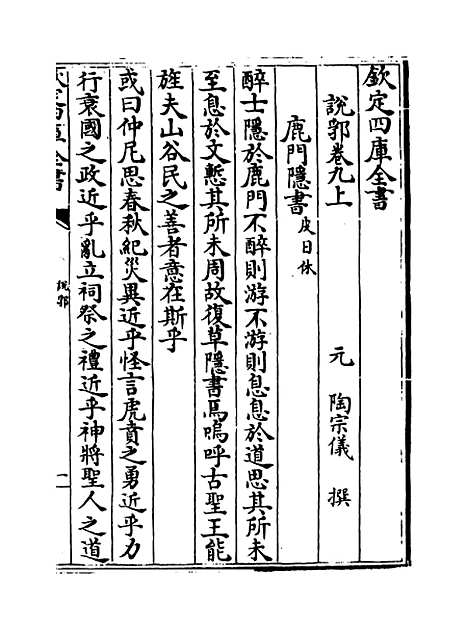 欽定四庫全書
說郛卷九上
元 陶宗儀 撰
鹿門隱書皮日休
醉士隱於鹿門不醉則游不游則息息於道思其所未
至息於文慙其所未周故復草隱書焉嗚呼古聖王能
旌夫山谷民之善者意在斯乎
或曰仲尼思春秋紀災異近乎怪言虎賁之勇近乎力
行衰國之政近乎亂立祠祭之禮近乎神將聖人之道
說郛